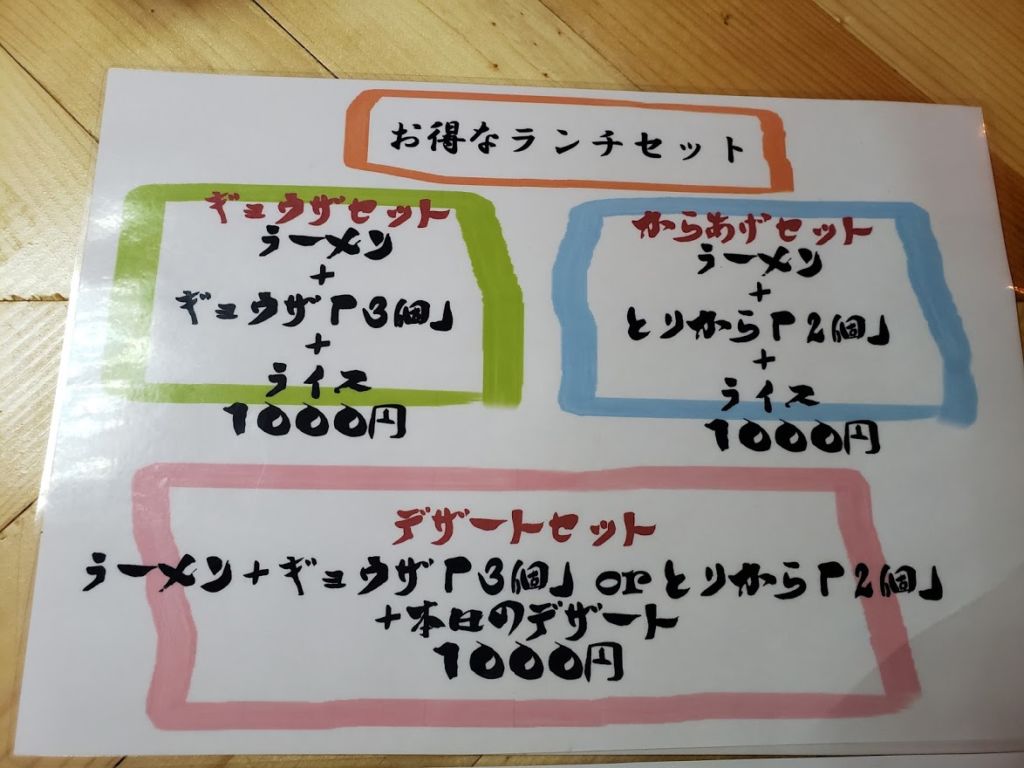 お得なランチセット
ギョウザセット
ラーメン
+
ギョウザ「3個」
+
ライス
1000円
からあげセット
ラーメン
+
とりから「2個」
+
ライス
1000円
デザートセット
ラーメン+ギョウザ「3個」orとりから「2個」
+本日のデザート
1000円